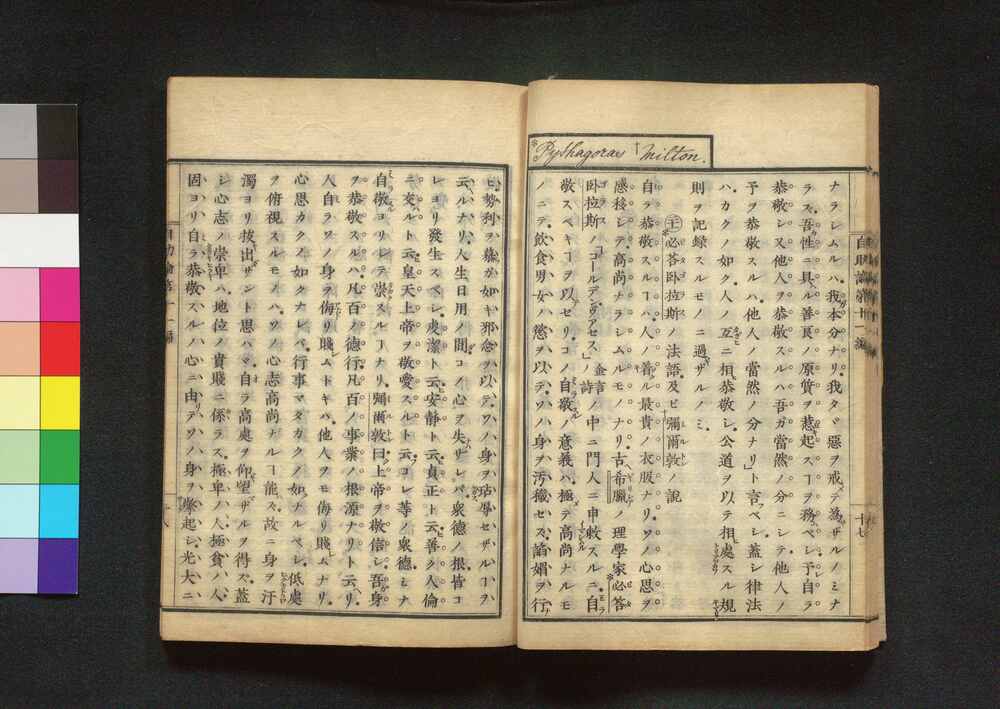 *Pythagoras †Milton.
自助論第十一編
十七
ナラシムルハ我本分ナリ我タヾ惡ヲ戒テ爲ザルノミナ
ラズ吾性ニ具ル善良ノ原質ヲ惹起スヿヲ務ベシ予自ラ
恭敬シ又他人ヲ恭敬スルハ吾ガ當然ノ分ニシテ他人ノ
予ヲ恭敬スルハ他人ノ當然ノ分ナリ」ト言ベシ蓋シ律法
ハカクノ如ク人ノ互ニ相恭敬シ公道ヲ以テ相處スル規
則ヲ記録スルモノニ過ザルノミ
二十 必答臥拉斯ノ法語及ビ彌爾敦ノ說
自ラ恭敬スルヿハ人ノ着ル最貴ノ衣服ナリソノ心思ヲ
感移シテ高尚ナラシムルモノナリ古希臘ノ理學家必答
臥拉斯ノ「ゴールデンヴアセス」金言ノ詩ノ中ニ門人ニ申敎スルニ自
敬スベキヿヲ以セリコノ自敬ノ意義ハ極テ高尚ナルモ
ノニテ飲食男女ノ慾ヲ以テソノ身ヲ汚穢セズ諂媚ヲ行
ヒ勢利ヲ慕カ如キ邪念ヲ以テソノ身ヲ玷辱セザルヿヲ
云ルナリ人生日用ノ間コノ心ヲ失ザレバ衆德ノ根皆コ
レヨリ發生スベシ處潔ト云安静ト云貞正ト云善ク人倫
ニ交ルト云皇天上帝ヲ敬愛スルト云コレ等ノ衆德ミナ
自敬ヨリシテ崇スルヿナリ彌爾敦曰上帝ヲ敬信シ吾身
ヲ恭敬スルハ凡百ノ德行凡百ノ事業ノ根源ナリト云リ
人自ラソノ身ヲ侮リ賤ムトキハ他人ヲモ侮リ賤ムナリ
心思カクノ如クナレバ行事マタカクノ如ナルベシ低處
ヲ俯視スルモノハソノ心志高尚ナルヿ能ズ故ニ身ヲ汙
濁ヨリ拔出ザント思ハマ自ラ高處ヲ仰望ザルヲ得ズ蓋
シ心志ノ崇卑ハ地位ノ貴賤ニ係ラズ極卑ノ人極貧ノ人
固ヨリ自ラ恭敬スルノ心ニ由テソノ身ヲ擧起シ光大ニ
自助論第十一編